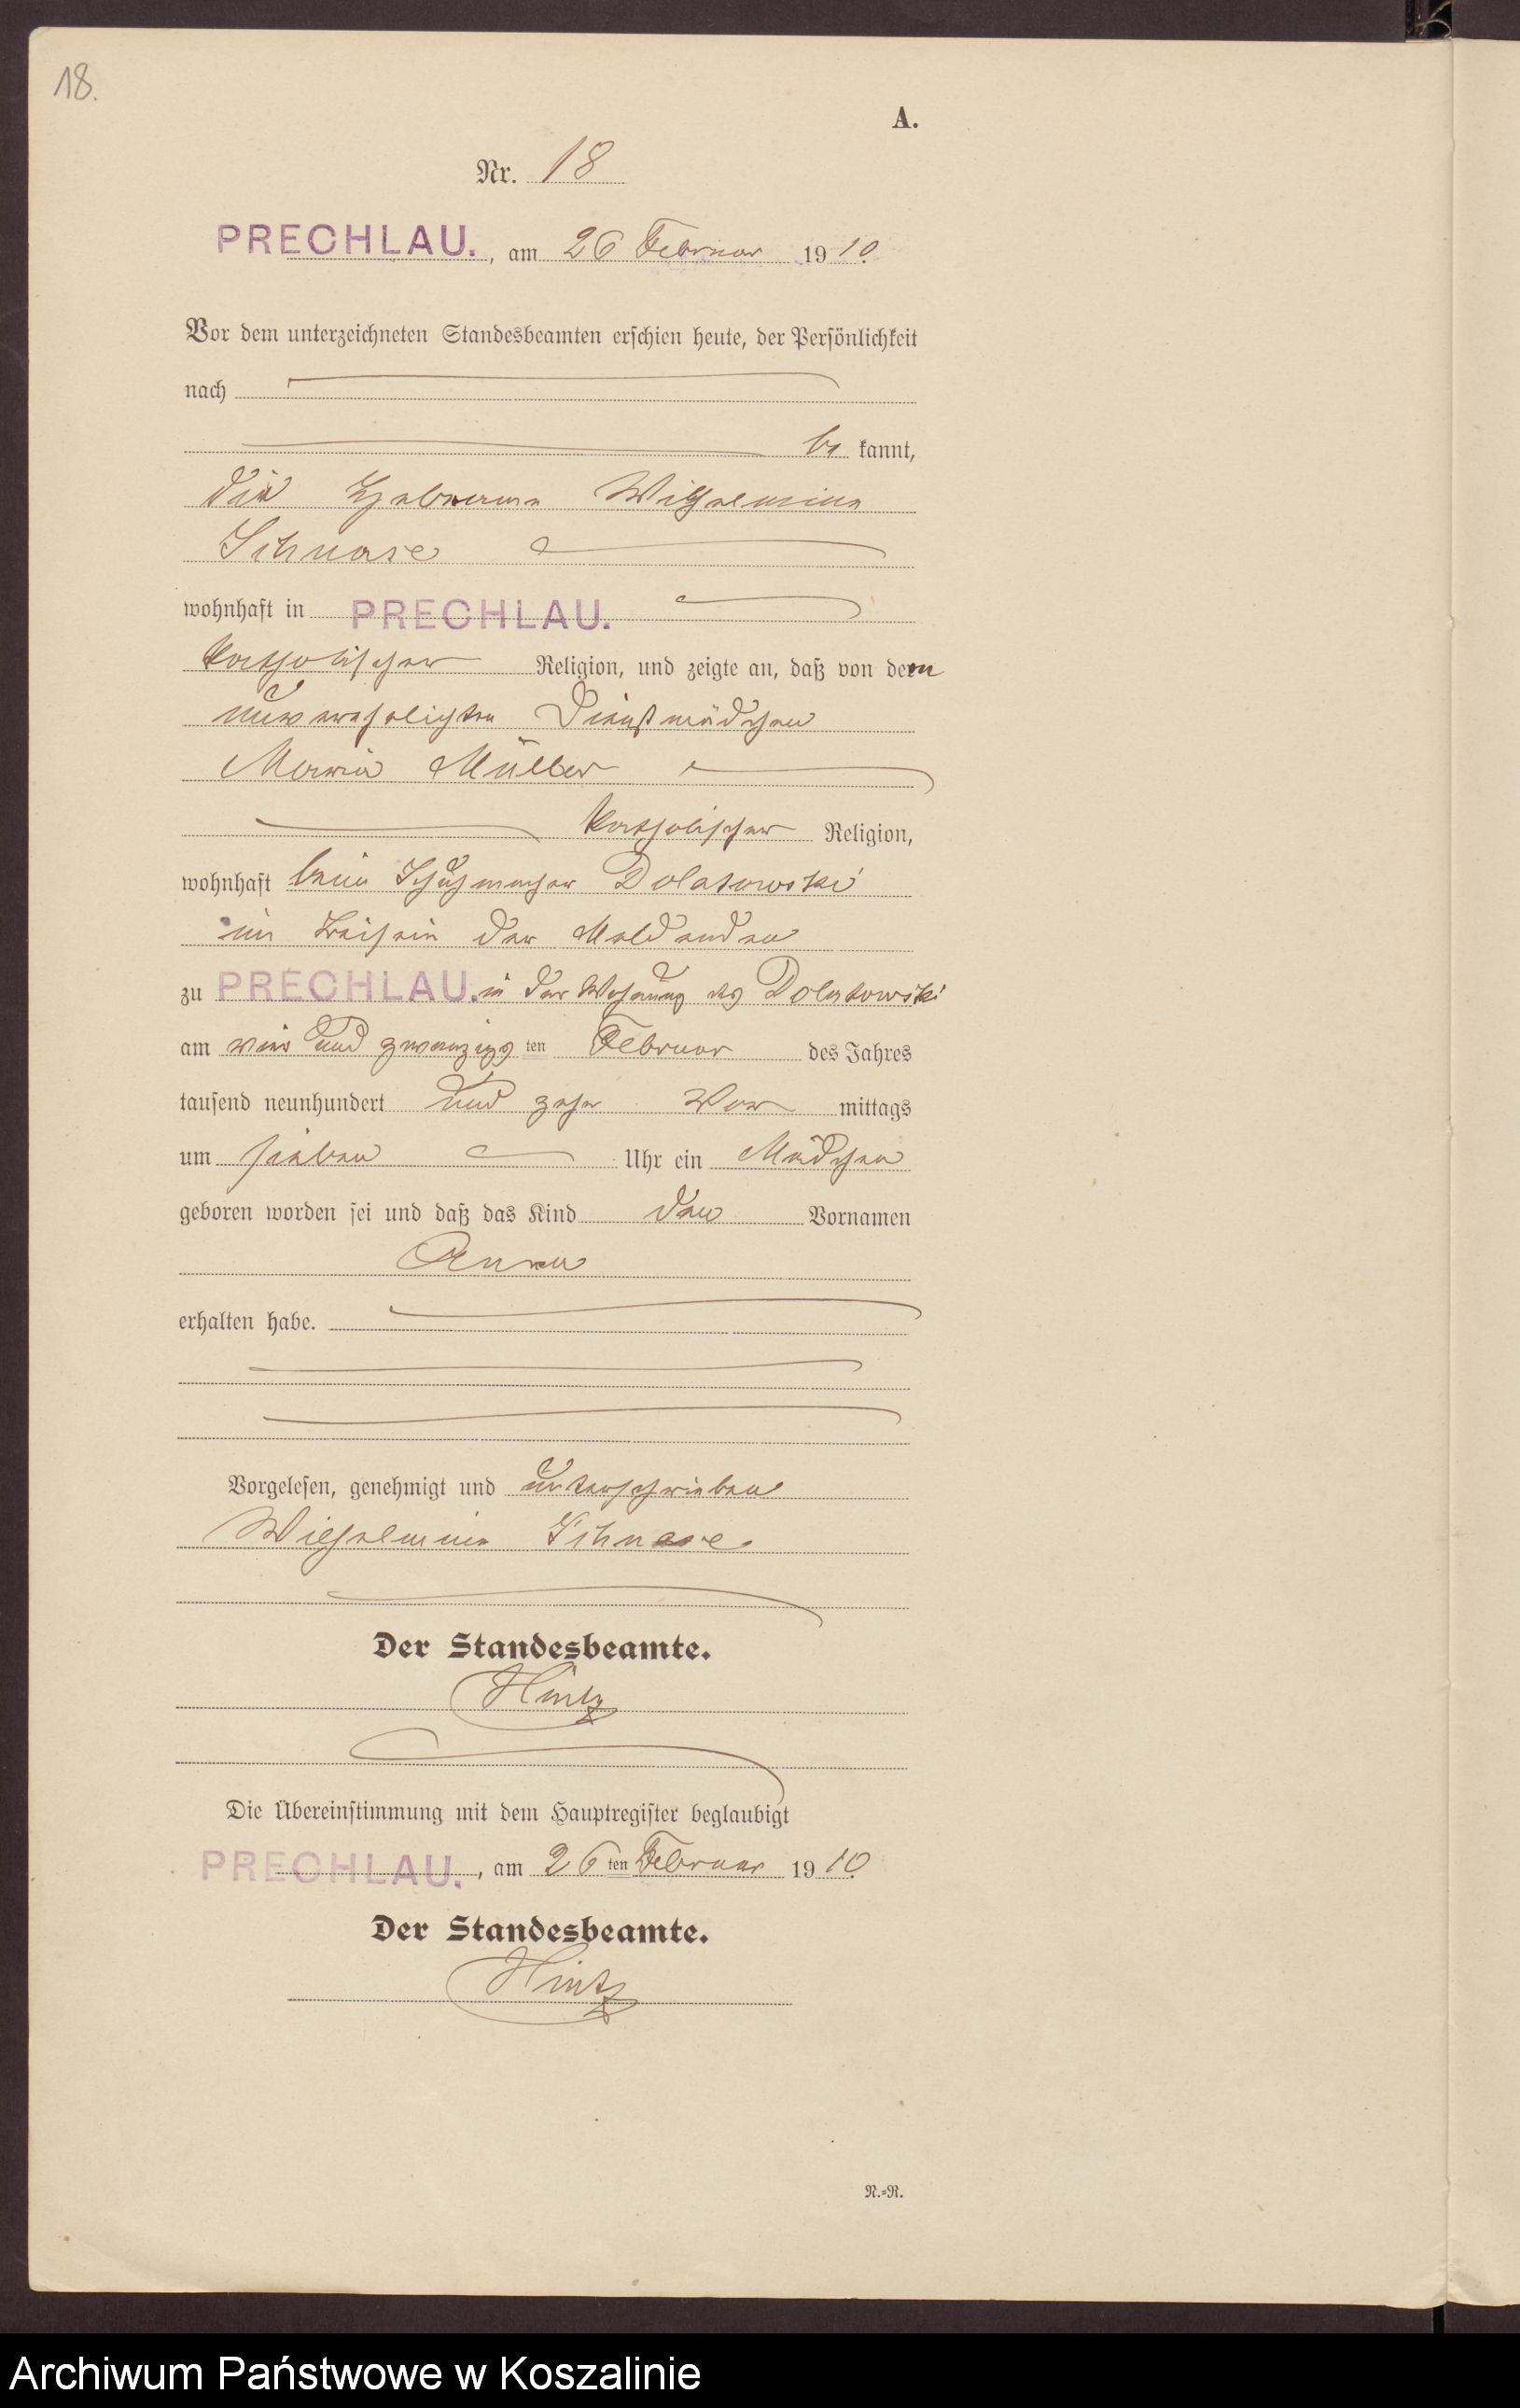 18.
A.
Nr. 18
PRECHLAU., am 26 Februar 1910.
Vor dem unterzeichneten Standesbeamten erschien heute, der Persönlichkeit
nach
be kannt,
die Hebamme Wilhelmine
Schnase
wohnhaft in PRECHLAU.
katholischer Religion, und zeigte an, daß von dem
unverehelichten Dienstmädchen
Maria Müller
katholischer Religion,
wohnhaft beim Schuhmacher Dolatowski
im Beisein der Meldenden
zu PRECHLAU. in der Wohnung des Dolatowski
am ein und zwanzigsten Februar des Jahres
tausend neunhundert und zehn Vor mittags
um sieben Uhr ein Mädchen
geboren worden sei und daß das Kind den Vornamen
Anna
erhalten habe.
Vorgelesen, genehmigt und unterschrieben
Wilhelmine Schnase
Der Standesbeamte.
Hintz
Die Übereinstimmung mit dem Hauptregister beglaubigt
PRECHLAU., am 26ten Februar 1910.
Der Standesbeamte.
Hintz
N.=R.
Archiwum Państwowe w Koszalinie